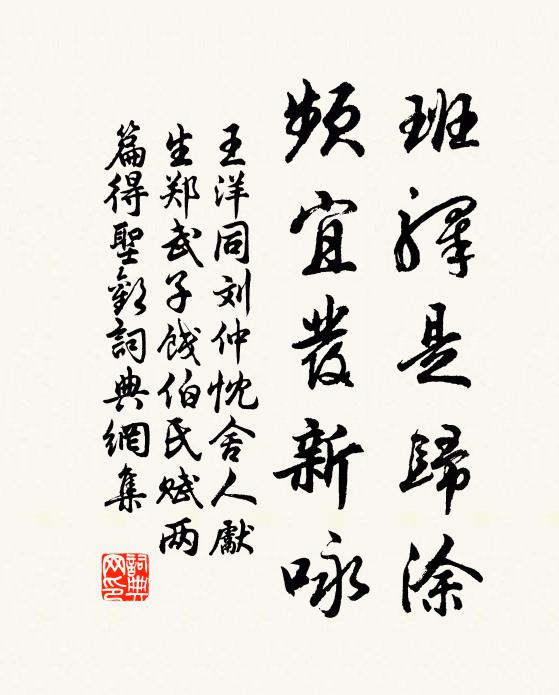 班驛是歸涂
頻宜發新咏
王洋同刘仲忱舍人獻
生郑武子餞伯氏赋两
篇得聖詞典網集
詞典网印